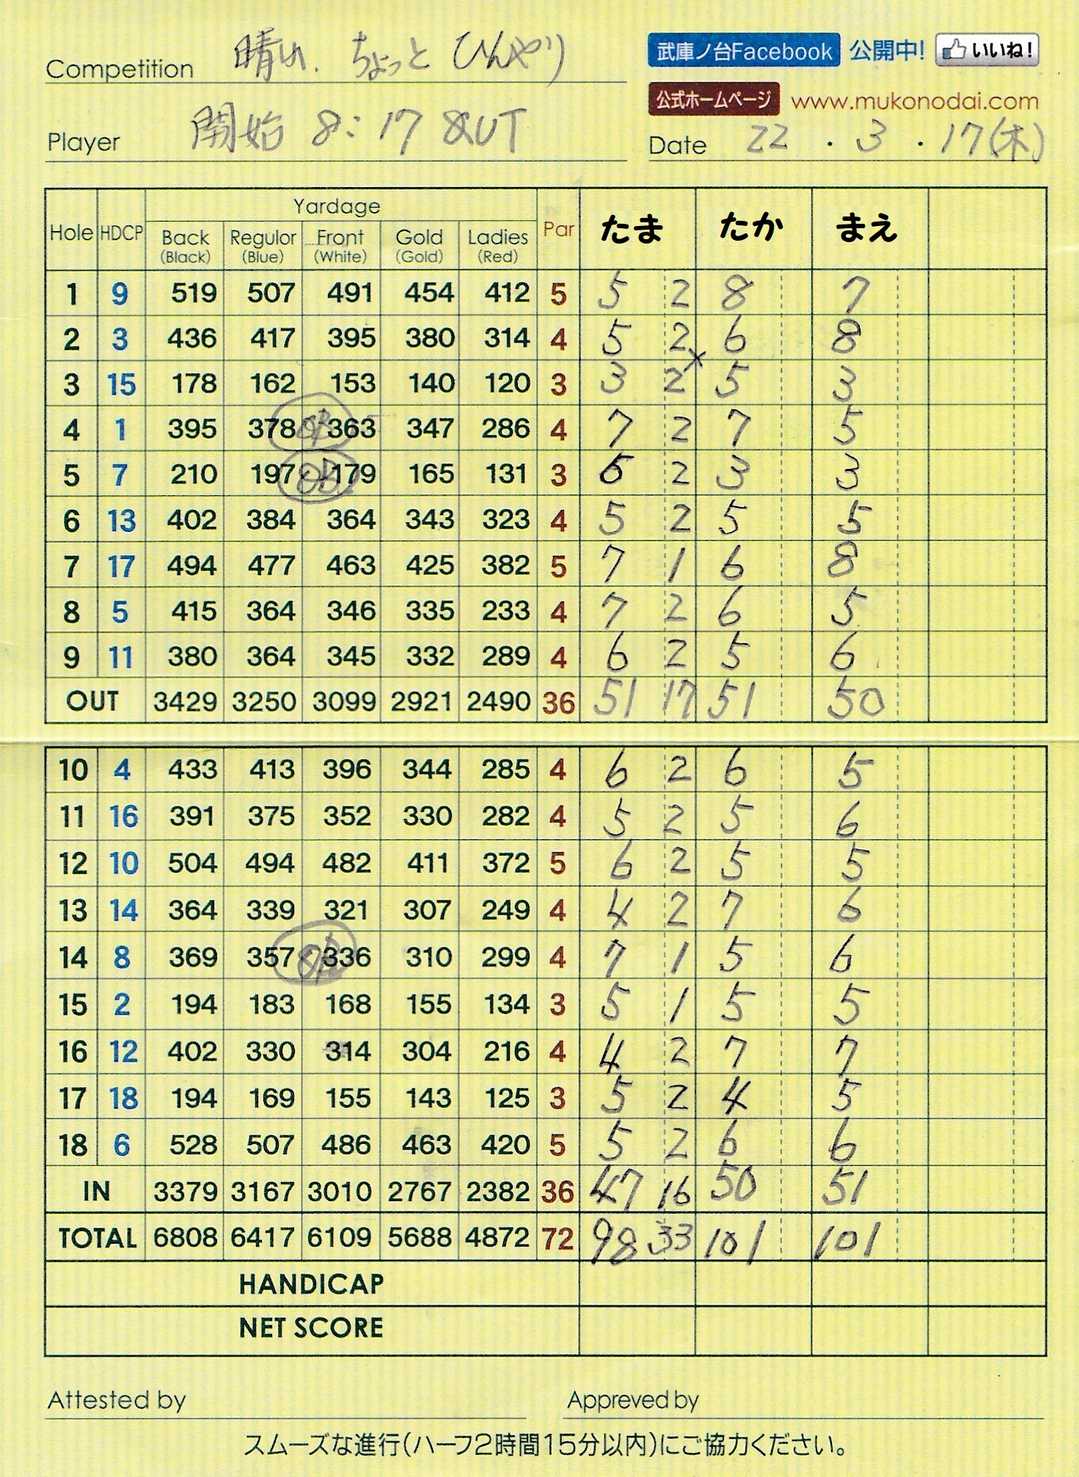 Competition 晴れ、ちょっとひんやり
武庫ノ台Facebook 公開中! いいね!
公式ホームページ www.mukonodai.com
Player 開始 8:17 OUT
Date 22 . 3 . 17(木)
Hole HDCP Yardage Par たま たか まえ
Back Regulor Front Gold Ladies
(Black) (Blue) (White) (Gold) (Red)
1 9 519 507 491 454 412 5 5 2 8 7
2 3 436 417 395 380 314 4 5 2 6 8
3 15 178 162 153 140 120 3 3 2 × 5 3
4 1 395 378 OB 363 347 286 4 7 2 7 5
5 7 210 197 OB 179 165 131 3 6 2 3 3
6 13 402 384 364 343 323 4 5 2 5 5
7 17 494 477 463 425 382 5 7 1 6 8
8 5 415 364 346 335 233 4 7 2 6 5
9 11 380 364 345 332 289 4 6 2 5 6
OUT 3429 3250 3099 2921 2490 36 51 17 51 50
10 4 433 413 396 344 285 4 6 2 6 5
11 16 391 375 352 330 282 4 5 2 5 6
12 10 504 494 482 411 372 5 6 2 5 5
13 14 364 339 321 307 249 4 4 2 7 6
14 8 369 357 OB 336 310 299 4 7 1 5 6
15 2 194 183 168 155 134 3 5 1 5 5
16 12 402 330 314 304 216 4 4 2 7 7
17 18 194 169 155 143 125 3 5 2 4 5
18 6 528 507 486 463 420 5 5 2 6 6
IN 3379 3167 3010 2767 2382 36 47 16 50 51
TOTAL 6808 6417 6109 5688 4872 72 98 33 101 101
HANDICAP
NET SCORE
Attested by Appreved by
スムーズな進行(ハーフ2時間15分以内)にご協力ください。